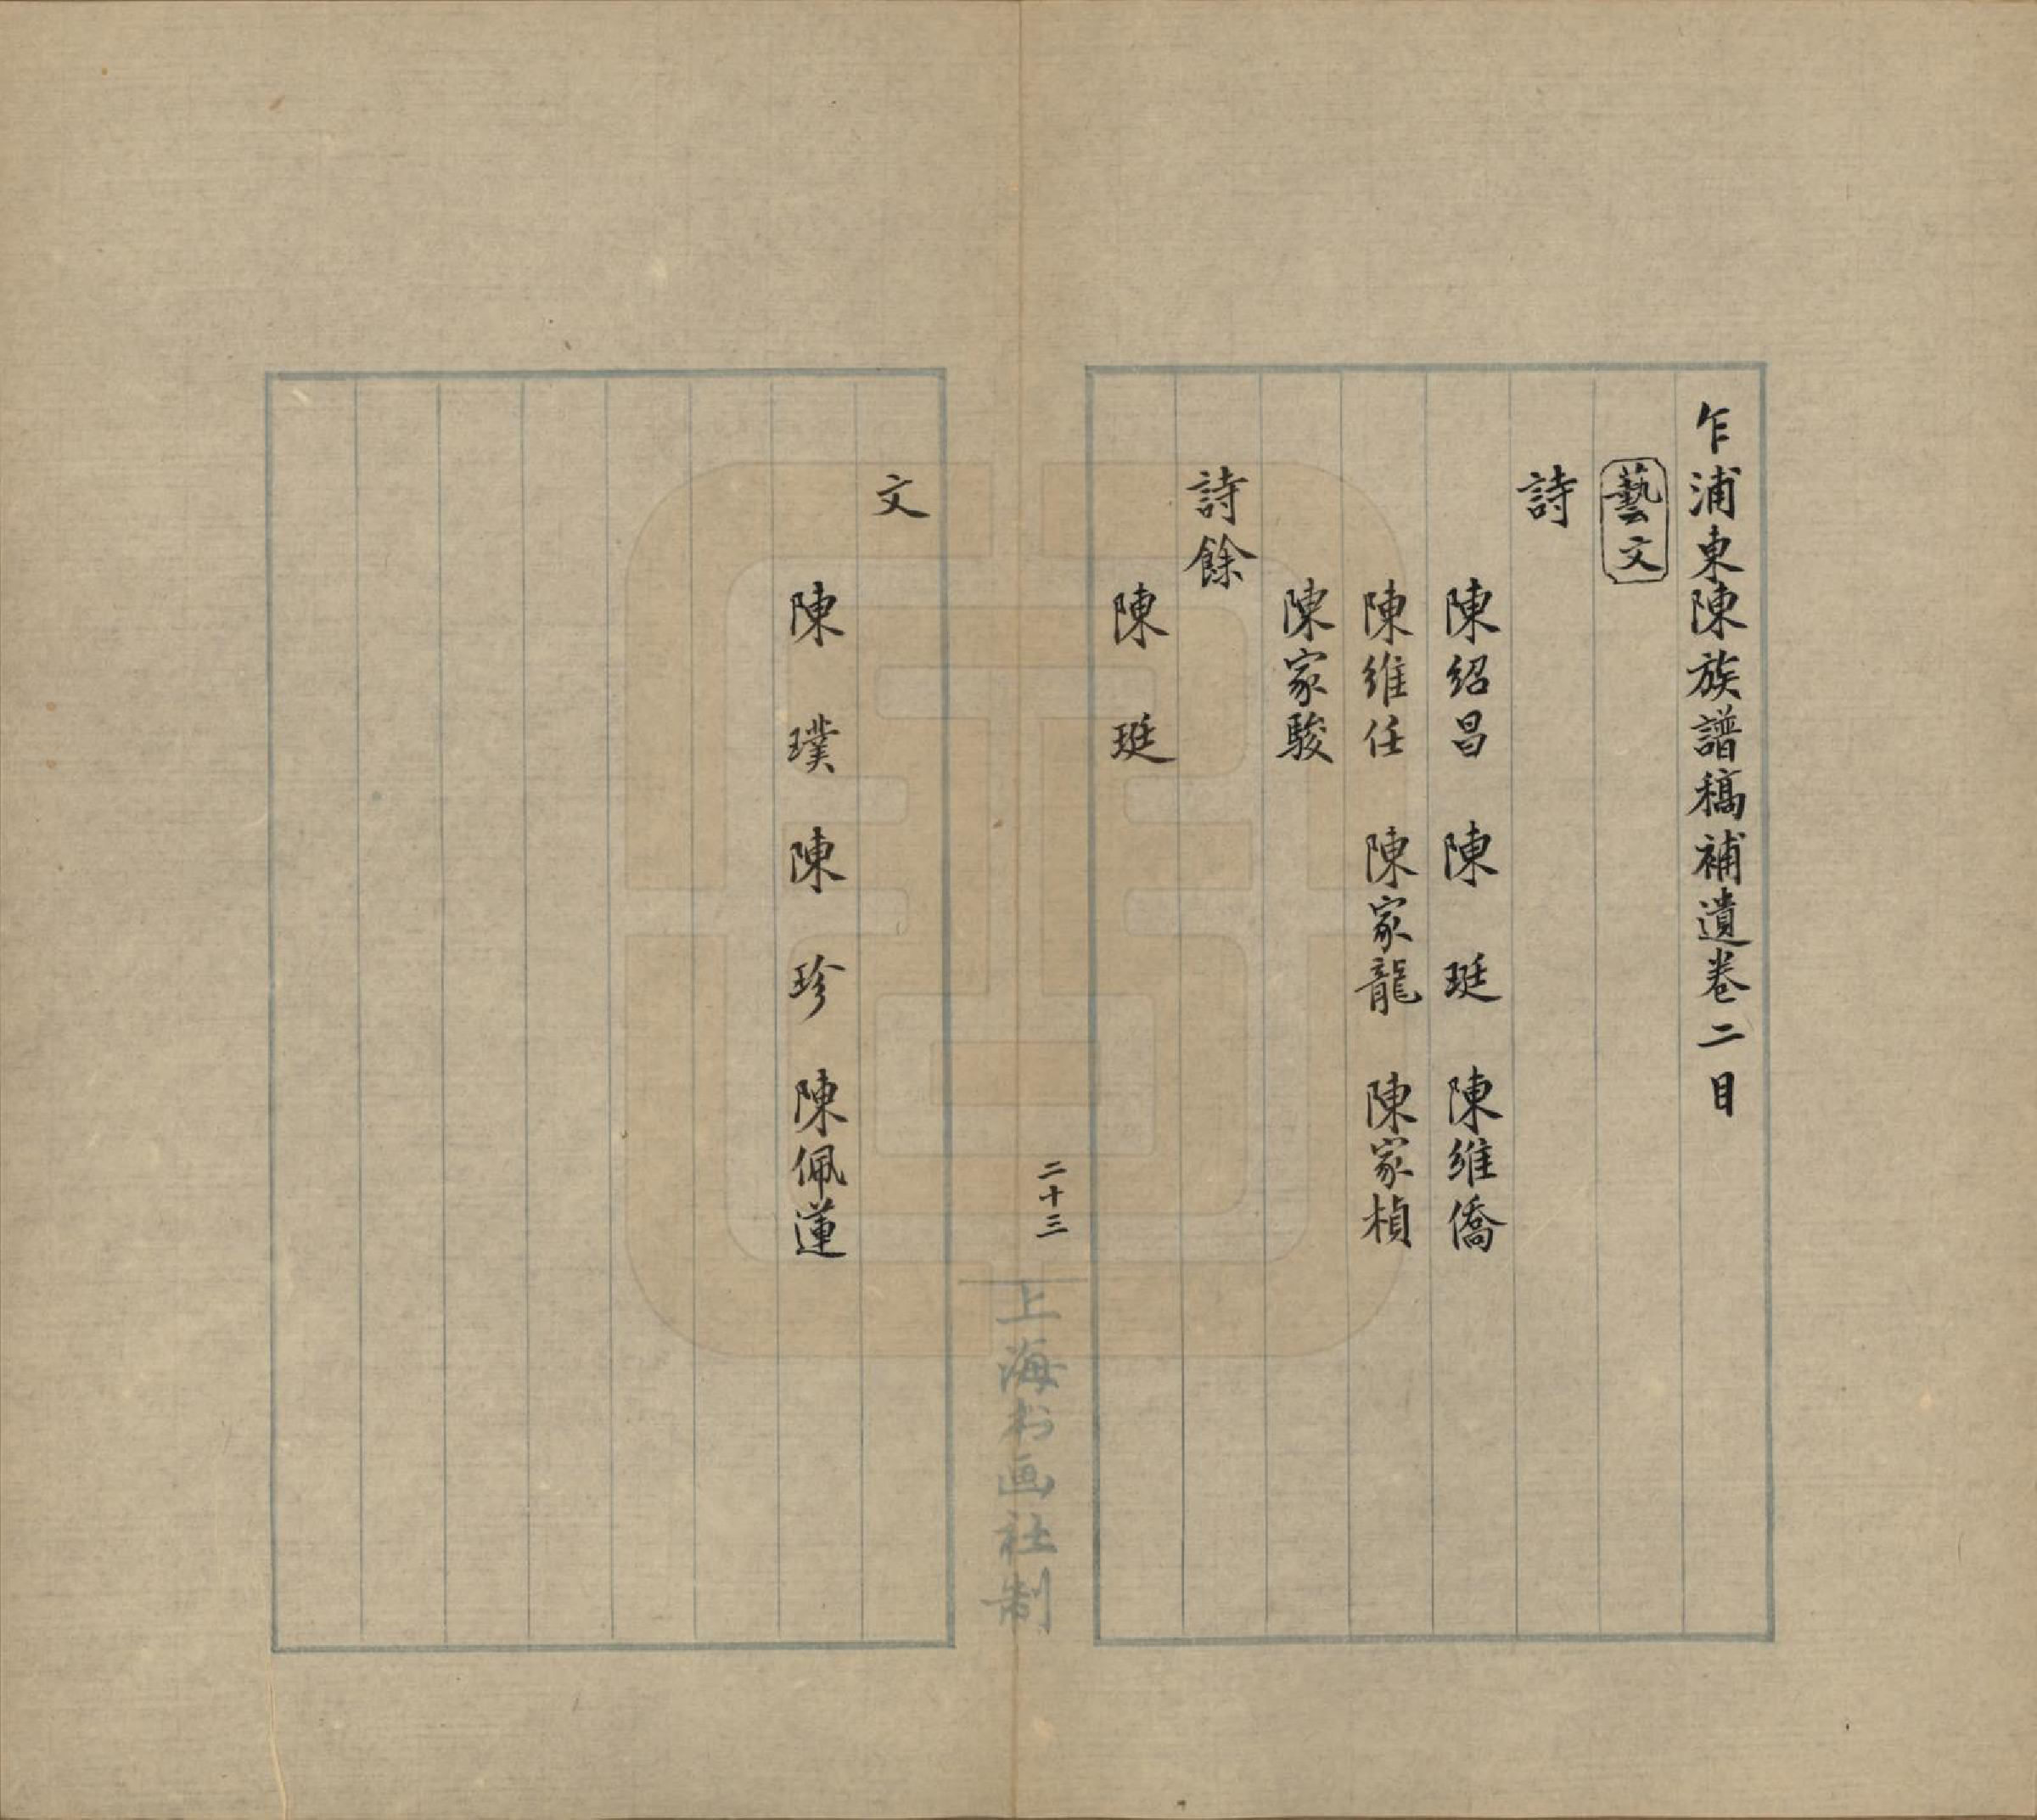 乍浦東陳族譜稿補遺卷二目
藝文
詩
陳紹昌 陳珽 陳維僑
陳維任 陳家龍 陳家楨
陳家駿
詩餘
陳珽
二十三
上海书画社制
文
陳璞 陳珍 陳佩蓮